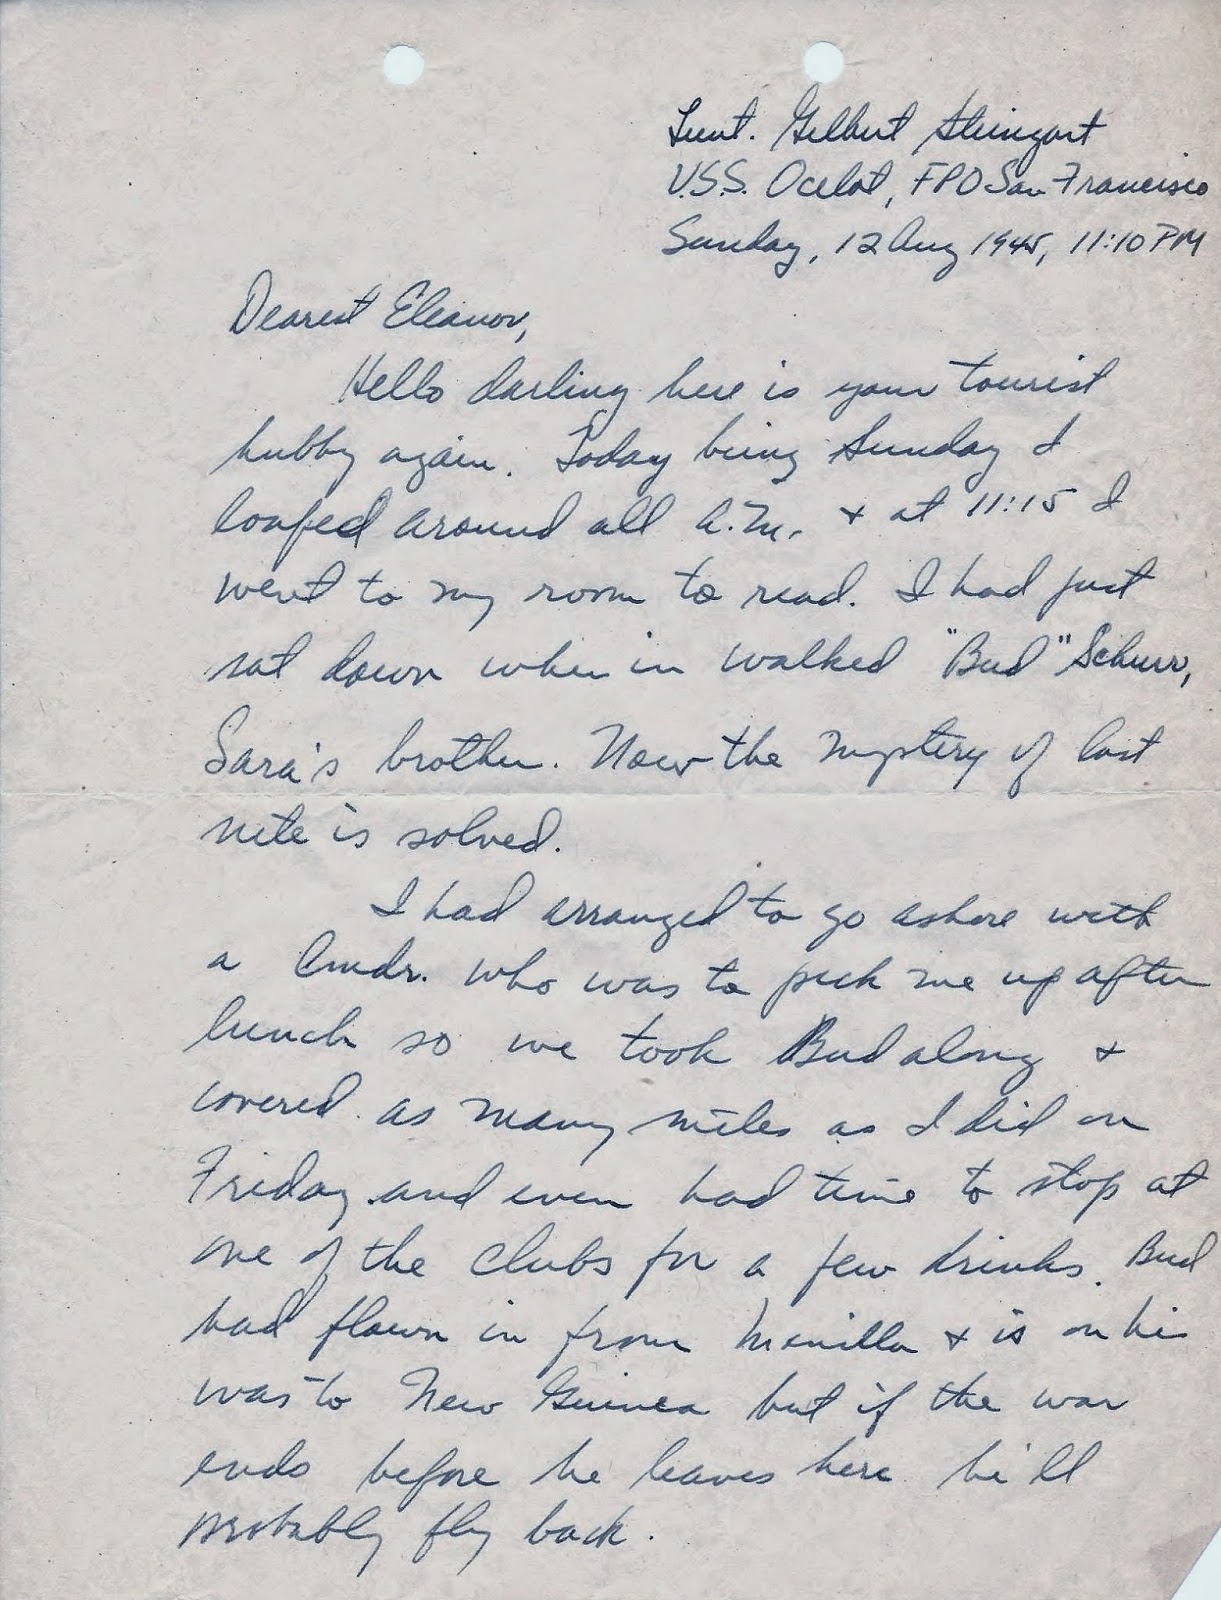 Lieut. Gilbert Steingart
U.S.S. Ocelot, FPO San Francisco
Sunday, 12 Aug 1945, 11:10 PM
Dearest Eleanor,
Hello darling here is your tourist
hubby again. Today being Sunday I
loafed around all a.m. & at 11:15 I
went to my room to read. I had just
sat down when in walked "Bud" Schurr,
Sara's brother. Now the mystery of last
nite is solved.
I had arranged to go ashore with
a Cmdr. who was to pick me up after
lunch so we took Bud along &
covered as many miles as I did on
Friday and even had time to stop at
one of the clubs for a few drinks. Bud
had flown in from Manilla & is on his
was to New Guinea but if the war
ends before he leaves here he'll
probably fly back.